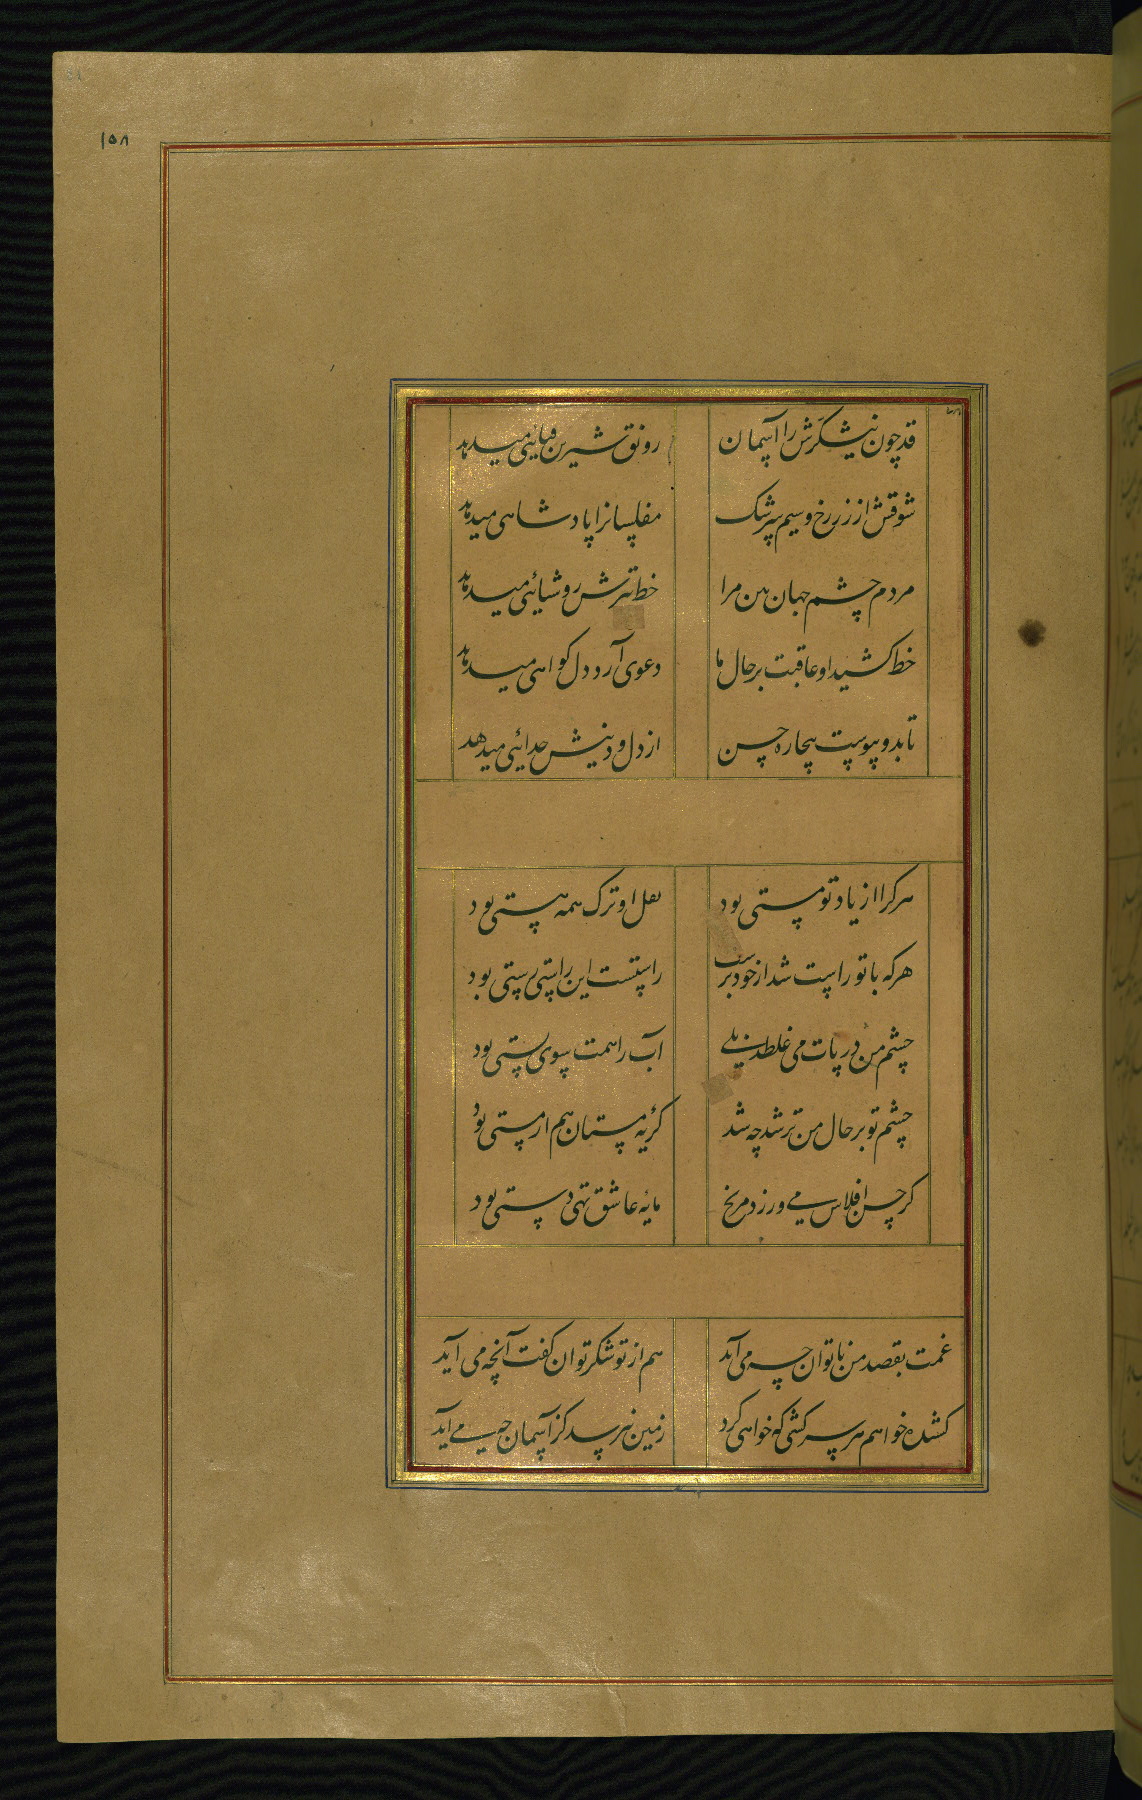 ۱۵۸
قد چون نیشکرش را آسمان رونق شیرین قبایی میدهد
شوقش از زر رخ و سیم سرشک مفلسانرا پادشاهی میدهد
مردم چشم جهان بین مرا خط ترش روشنائی میدهد
خط کشید او عاقبت بر حال ما دعوی آرد دل کواهی میدهد
تا بدو پیوست بیچاره حسن از دل و دینش جدائی میدهد
هرکرا از یاد تو مستی بود نقل او ترک همه هستی بود
هرکه با تو راست شد از خود برست راستست این راستی رستی بود
چشم من در پات می غلطد بلی آب را همت بسوی پستی بود
چشم تو بر حال من تر شد چه شد کریه مستان هم از مستی بود
کر حسن افلاس می ورزد مرنج مایه عاشق تهی دستی بود
غمت بقصد من ناتوان چه می آید هم از تو شکر توان کفت آنچه می آید
کشنده خواهم هر سرکشی که خواهی کرد زمین نپرسد کز آسمان چه می آید